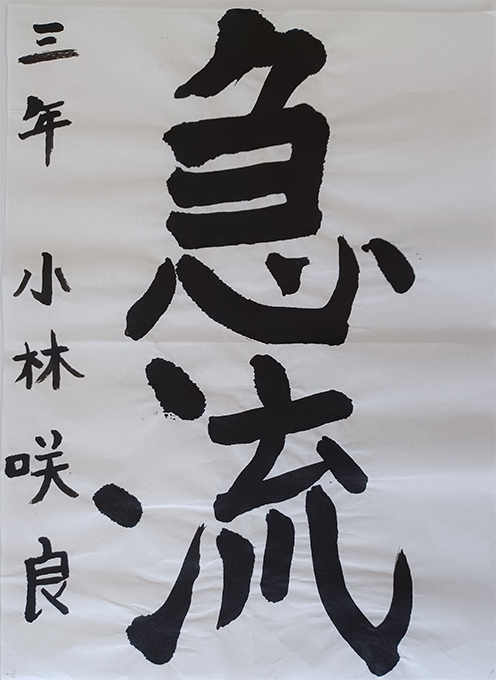 急流
三年 小林咲良